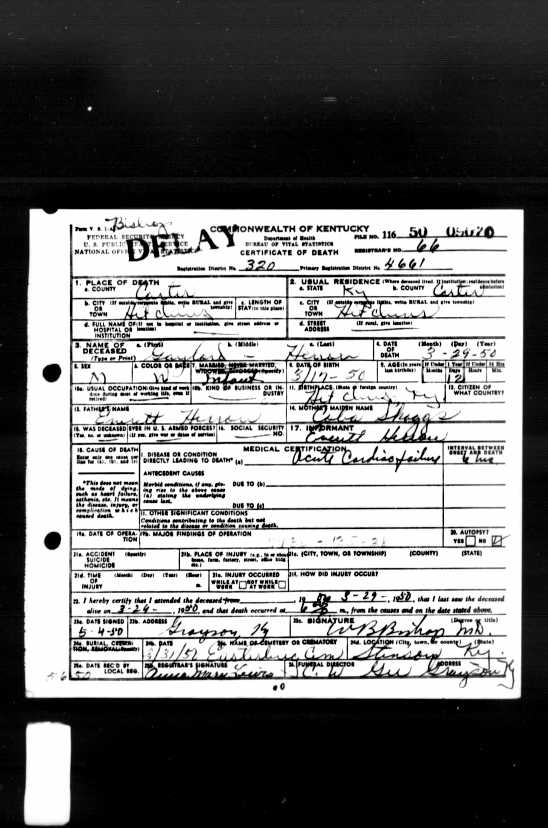 Bishop
Form V. S. 1-A COMMONWEALTH OF KENTUCKY
FEDERAL SECURITY AGENCY Department of Health FILE NO. 116 50 05070
U. S. PUBLIC HEALTH SERVICE BUREAU OF VITAL STATISTICS
NATIONAL OFFICE OF VITAL STATISTICS CERTIFICATE OF DEATH REGISTRAR'S NO. 66
DELAY
Registration District No. 320 Primary Registration District No. 4661
1. PLACE OF DEATH 2. USUAL RESIDENCE (Where deceased lived. If institution: residence before admission)
a. COUNTY Carter a. STATE Ky b. COUNTY Carter
b. CITY (If outside corporate limits, write RURAL and give township) OR TOWN Hitchins c. LENGTH OF STAY (in this place) c. CITY (If outside corporate limits, write RURAL and give township) OR TOWN Hitchins
d. FULL NAME OF (If not in hospital or institution, give street address or location) HOSPITAL OR INSTITUTION d. STREET ADDRESS (If rural, give location)
3. NAME OF DECEASED (Type or Print) a. (First) Gaylord b. (Middle) - c. (Last) 4. DATE OF DEATH (Month) (Day) (Year) 3-29-50
5. SEX M 6. COLOR OR RACE W 7. MARRIED, NEVER MARRIED, WIDOWED, DIVORCED (Specify) Infant 8. DATE OF BIRTH 3/17-50 9. AGE (In years last birthday) If Under 1 Year Months Days 12 If Under 24 Hrs. Hours Min.
10a. USUAL OCCUPATION (Give kind of work done during most of working life, even if retired) 10b. KIND OF BUSINESS OR INDUSTRY 11. BIRTHPLACE (State or foreign country) Hitchins Ky 12. CITIZEN OF WHAT COUNTRY?
13. FATHER'S NAME Everett 14. MOTHER'S MAIDEN NAME Skaggs
15. WAS DECEASED EVER IN U. S. ARMED FORCES? (Yes, no, or unknown) (If yes, give war or dates of service) 16. SOCIAL SECURITY NO. 17. INFORMANT Everett
18. CAUSE OF DEATH MEDICAL CERTIFICATION INTERVAL BETWEEN ONSET AND DEATH
Enter only one cause per line for (a), (b), and (c) I. DISEASE OR CONDITION DIRECTLY LEADING TO DEATH* (a) Acute Cardiac failure 6 hrs
ANTECEDENT CAUSES
*This does not mean the mode of dying, such as heart failure, asthenia, etc. It means the disease, injury, or complication which caused death. Morbid conditions, if any, giving rise to the above cause (a) stating the underlying cause last. DUE TO (b)
DUE TO (c)
II. OTHER SIGNIFICANT CONDITIONS
Conditions contributing to the death but not related to the disease or condition causing death.
19a. DATE OF OPERATION 19b. MAJOR FINDINGS OF OPERATION 20. AUTOPSY? YES NO
21a. ACCIDENT SUICIDE HOMICIDE (Specify) 21b. PLACE OF INJURY (e.g., in or about home, farm, factory, street, office bldg., etc.) 21c. (CITY, TOWN, OR TOWNSHIP) (COUNTY) (STATE)
21d. TIME OF INJURY (Month) (Day) (Year) (Hour) m. 21e. INJURY OCCURRED WHILE AT WORK NOT WHILE AT WORK 21f. HOW DID INJURY OCCUR?
22. I hereby certify that I attended the deceased from 19 to 3-29-, 1950, that I last saw the deceased
alive on 3-29-, 1950, and that death occurred at 6 m., from the causes and on the date stated above.
23a. DATE SIGNED 5-4-50 23b. ADDRESS Grayson Ky 23c. SIGNATURE W B Bishop MD (Degree or title)
24a. BURIAL, CREMATION, REMOVAL (Specify) 24b. DATE 3/31/50 24c. NAME OF CEMETERY OR CREMATORY Cem 24d. LOCATION (City, town, or county) (State) Stinson Ky.
25a. DATE REC'D BY LOCAL REG. 5-6-50 25b. REGISTRAR'S SIGNATURE Anna Mary Lewis 26. FUNERAL DIRECTOR ADDRESS Grayson Ky